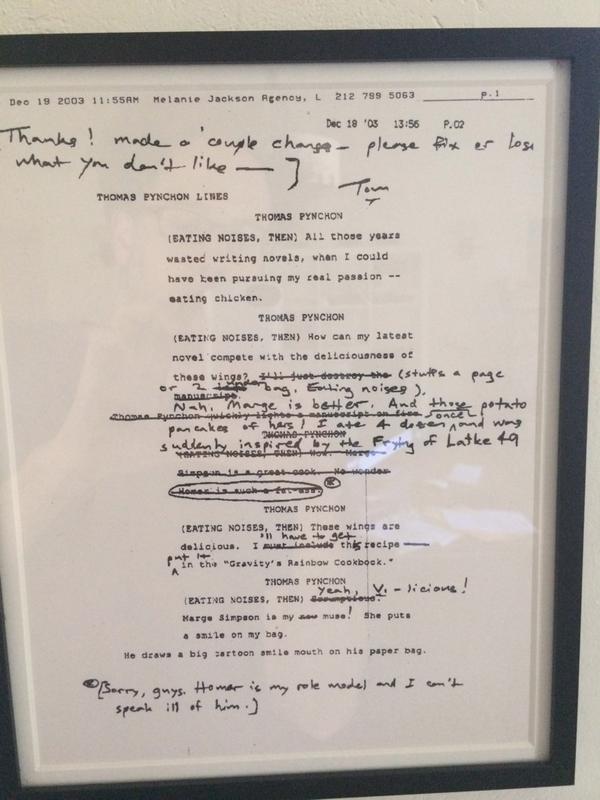 Dec 19 2003 11:55AM Melanie Jackson Agency, L 212 799 5063 p.1
Dec 18 '03 13:56 P.02
Thanks! made a couple changes – please fix or lose
what you don't like — ]
Tom
THOMAS PYNCHON LINES
THOMAS PYNCHON
(EATING NOISES, THEN) All those years
wasted writing novels, when I could
have been pursuing my real passion --
eating chicken.
THOMAS PYNCHON
(EATING NOISES, THEN) How can my latest
novel compete with the deliciousness of
these wings? I'll just destroy the (stuffs a page
or 2 into under bag. Eating noises),
manuscript.
Nah, Marge is better. And those potato
Thomas Pynchon quickly lights a manuscript on fire (once
pancakes of hers! I ate 4 dozen and was
THOMAS PYNCHON
suddenly inspired by the Frying of Latke 49
(EATING NOISES, THEN) Wow. Marge
Simpson is a great cook. No wonder
Homer is such a fat-ass. *
THOMAS PYNCHON
(EATING NOISES, THEN) These wings are
'll have to get
delicious. I must include this recipe —
put it
in the "Gravity's Rainbow Cookbook."
THOMAS PYNCHON
Yeah, V. - licious!
(EATING NOISES, THEN) Scrumptious!
Marge Simpson is my new muse! She puts
a smile on my bag.
He draws a big cartoon smile mouth on his paper bag.
* [Sorry, guys. Homer is my role model and I can't
speak ill of him.]